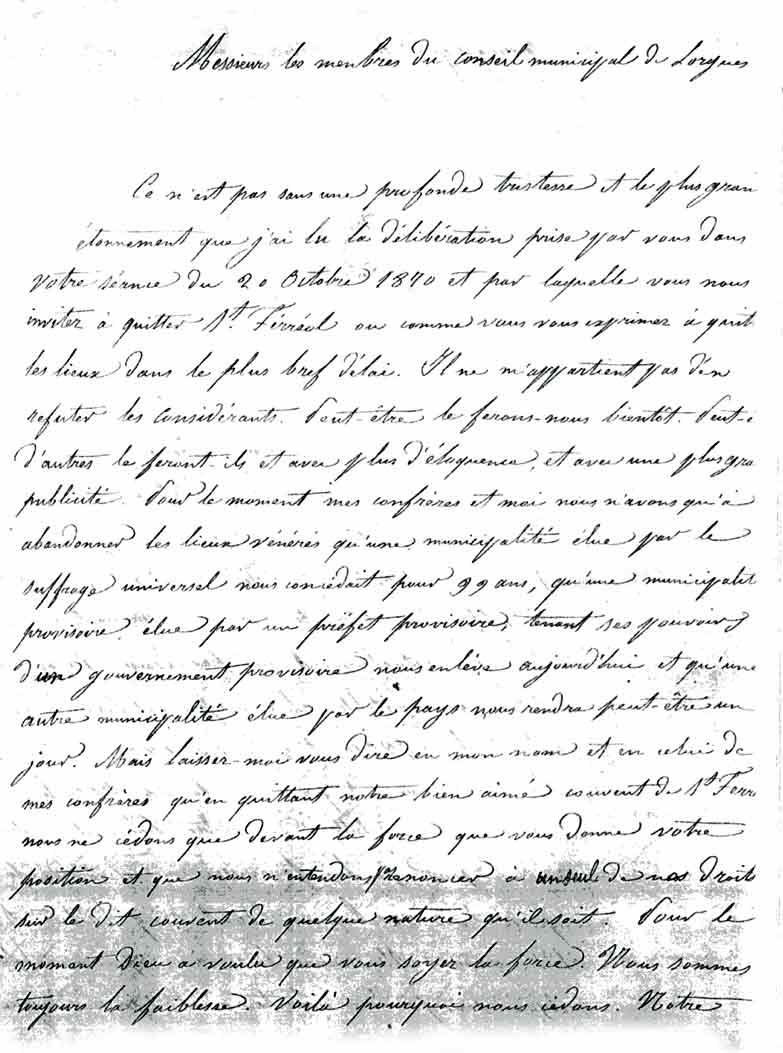 Messieurs les membres du conseil municipal de Lorgues
Ce n'est pas sans une profonde tristesse et le plus gran
étonnement que j'ai lu la délibération prise par vous dans
votre séance du 20 Octobre 1870 et par laquelle vous nous
invitez à quitter St. Férréol ou comme vous vous exprimez à quit
les lieux dans le plus bref délai. Il ne m'appartient pas d'en
refuter les considérants. Peut-être le ferons-nous bientôt. Peut-ê
d'autres le feront-ils et avec plus d'éloquence, et avec une plus gra
publicité. Pour le moment mes confrères et moi nous n'avons qu'à
abandonner les lieux vénérés qu'une municipalité élue par le
suffrage universel nous concédait pour 99 ans, qu'une municipalit
provisoire, élue par un préfet provisoire, tenant ses pouvoirs
d'un gouvernement provisoire nous enlève aujourd'hui et qu'une
autre municipalité élue par le pays nous rendra peut-être un
jour. Mais laissez-moi vous dire en mon nom et en celui de
mes confrères qu'en quittant notre bien aimé couvent de St Ferré
nous ne cédons que devant la force que vous donne votre
position et que nous n'entendons renoncer à un seul de nos droits
sur le dit couvent de quelque nature qu'il soit. Pour le
moment Dieu a voulu que vous soyez la force. Nous sommes
toujours la faiblesse. Voilà pourquoi nous cédons. Notre